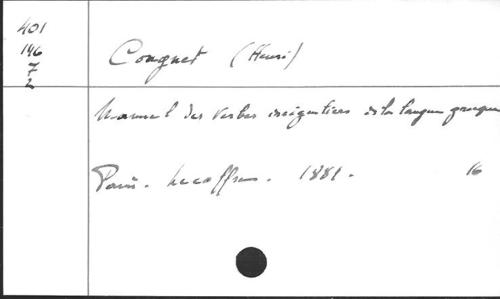 401
146
7
2
Conquet (Henri)
Manuel des verbes irréguliers de la langue grecque
Paris. Lecoffre. 1881. 16